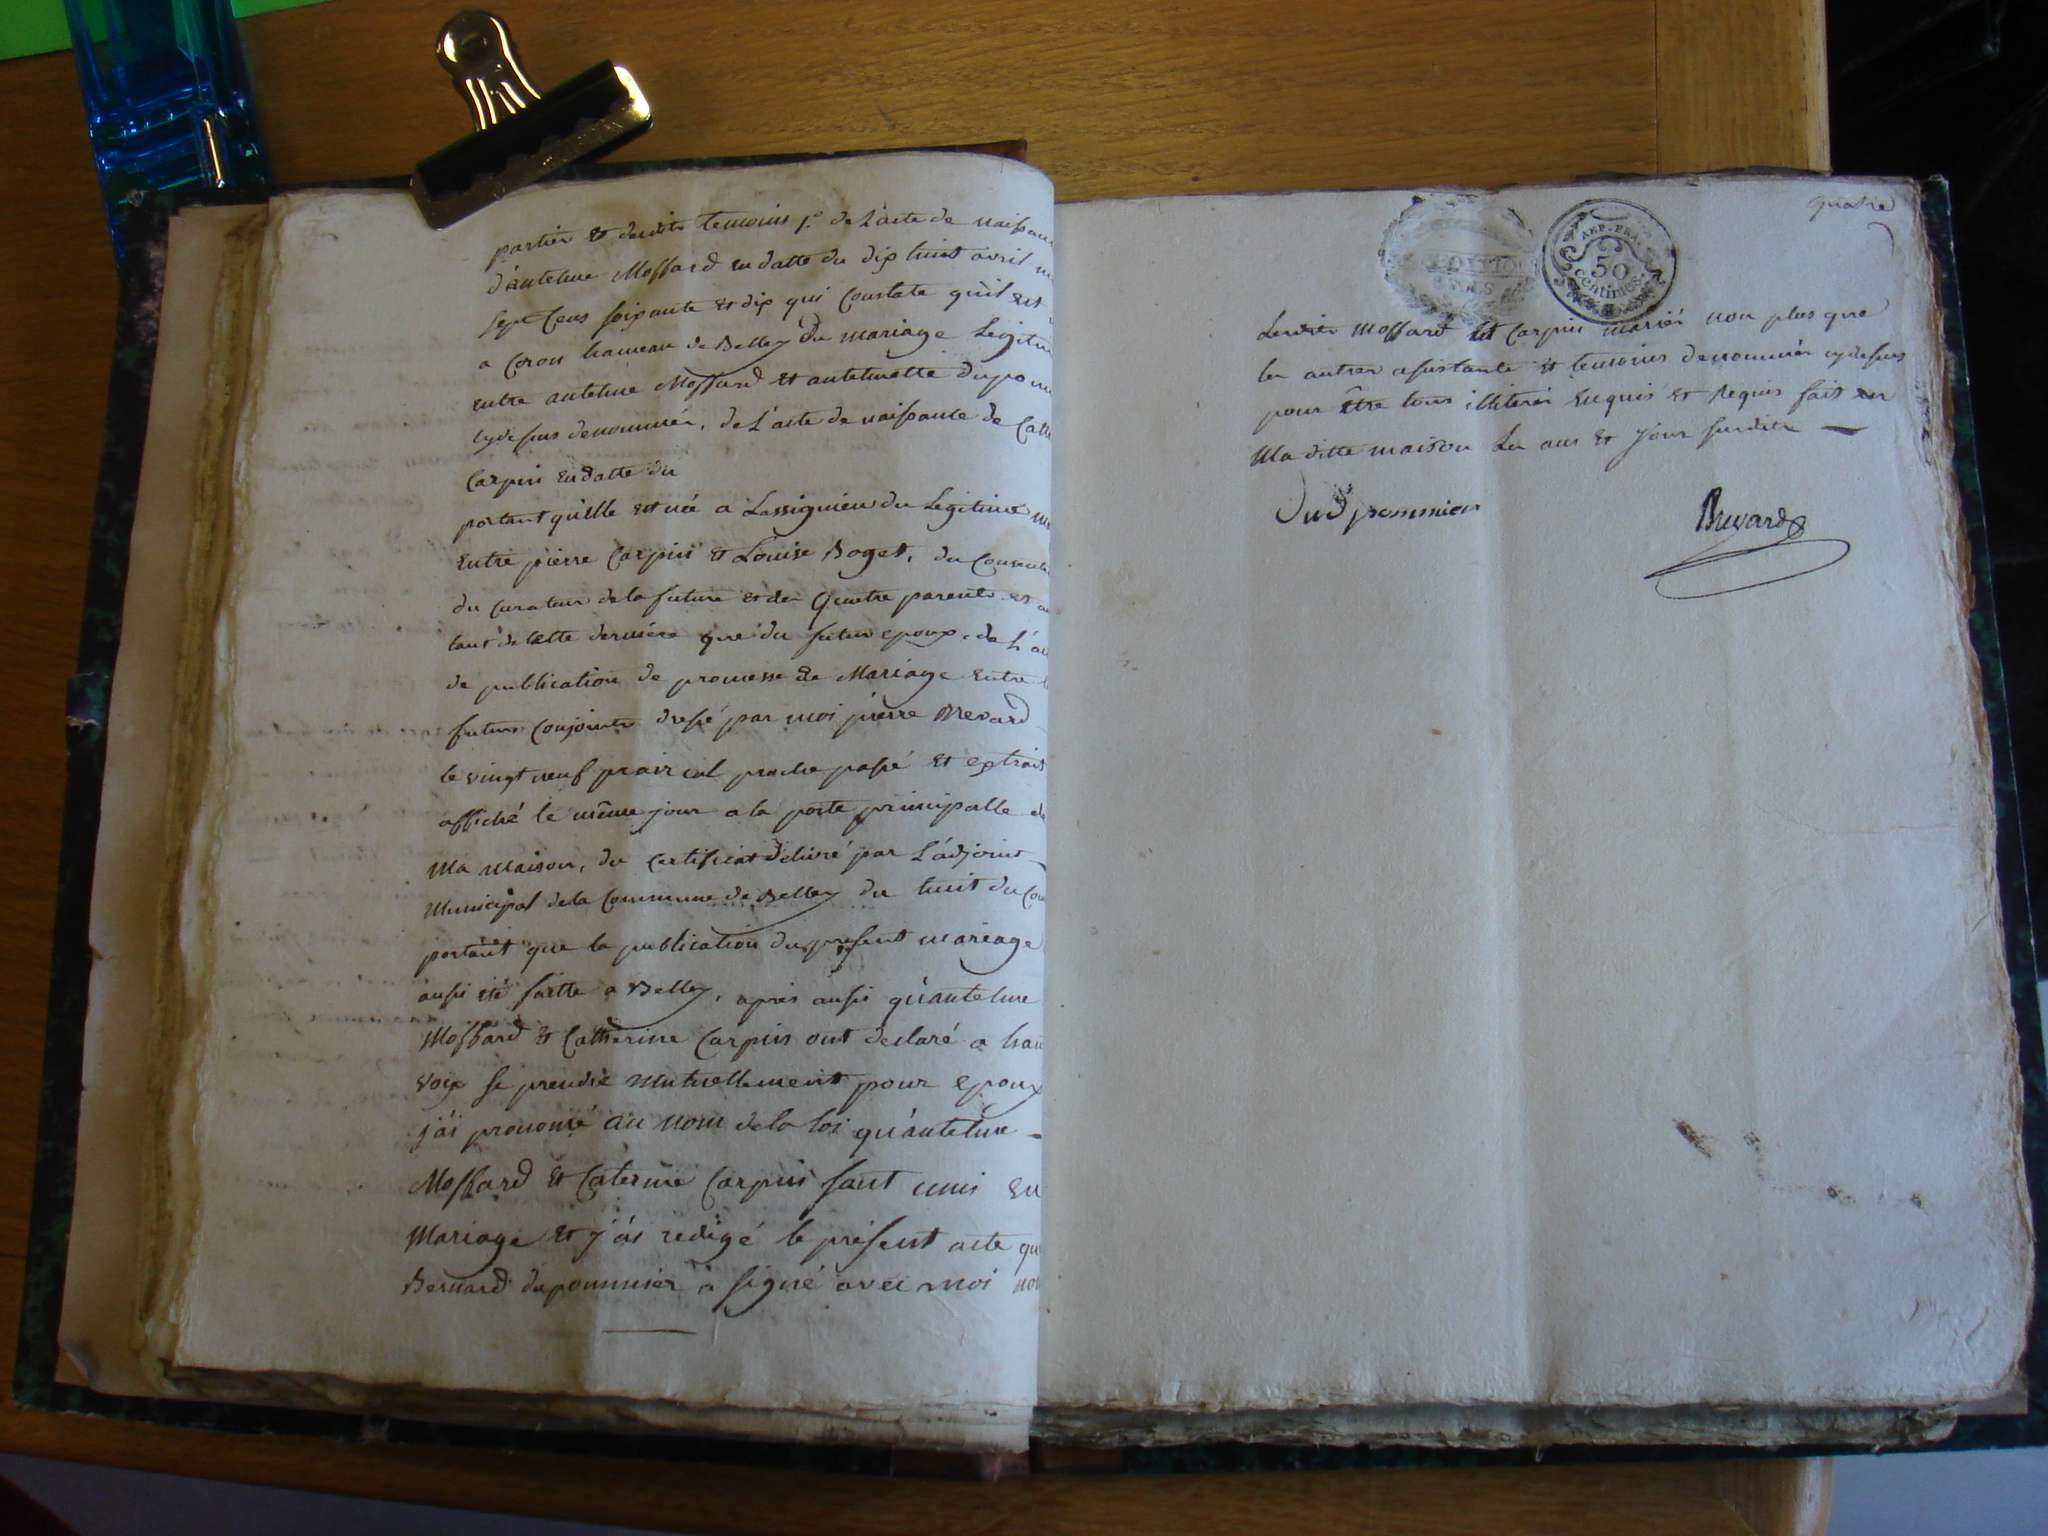 parties et desdits temoins 1.º de L'acte de naissan
d'antelme Mossard en datte du dix huit avril m
sept Cens soixante et dix qui Constate qu'il est
a Coron hameau de Belley Du mariage Legitim
entre antelme Mossard et antelmette dupom
cydessus denommés, de L'acte de naissance de Cath
Carpin en datte du
portant qu'elle est née a Lassignieu du Legitime m
Entre pierre Carpin et Louise Boget, du Consente
du Curateur de la future et de Quatre parents et a
tant de cette derniere que du futur epoux, de L'a
de publication de promesse de Mariage entre l
futurs Conjoints dressé par moi pierre Brevard
le vingt neuf prairéal proche passé et extrait
affiché le même jour a la porte principalle de
Ma Maison, du Certificat delivré par L'adjoint
Municipal de la Commune de Belley du huit du Cou
portant que la publication du present mariage
aussi été faitte a Belley, après aussi qu'antelme
Mossard et Catherine Carpin ont declaré a hau
voix se prendre mutuellement pour epoux
j'ai prononcé au nom de la loi qu'antelme -
Mossard et Caterine Carpin sont unis en
Mariage et j'ai redigé le présent acte qu
Bernard dupommier a signé avec moi no
quatre
REP. FRA.
50
centimes
Lesdits Mossard et Carpin mariés non plus que
les autres assistants et temoins denommés cydessus
pour être tous illiterés enquis et Requis fait en
Ma ditte maison Les ans et jour susdits —
Dudpommier
Brevard